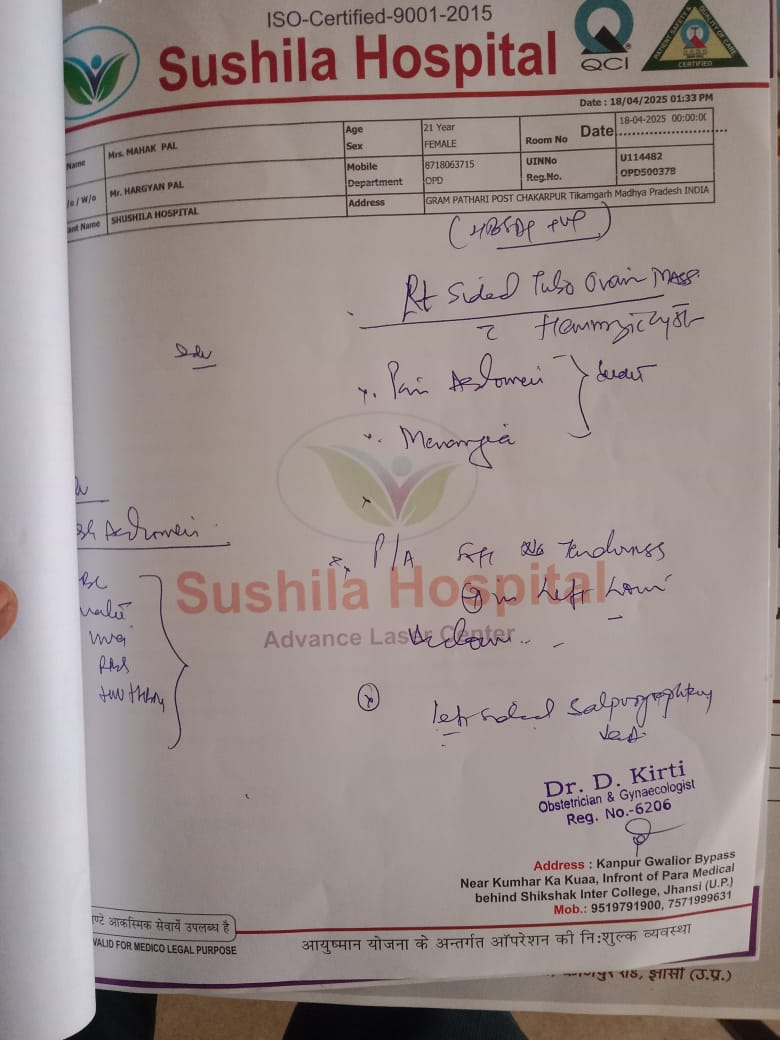 ISO-Certified-9001-2015
Sushila Hospital
QCI
PATIENT SAFETY & QUALITY OF CARE
CERTIFIED
Date : 18/04/2025 01:33 PM
Name Mrs. MAHAK PAL Age 21 Year Room No Date 18-04-2025 00:00:00
Sex FEMALE
/o / W/o Mr. HARGYAN PAL Mobile 8718063715 UINNo U114482
Department OPD Reg.No. OPD500378
ant Name SHUSHILA HOSPITAL Address GRAM PATHARI POST CHAKARPUR Tikamgarh Madhya Pradesh INDIA
Rt Sided Tubo Ovarin Mass
Adv
Pain Abdomen
Menorrgia
Abdomen
P/A Tenderness
in Left
RBS
Sushila Hospital
Advance Laser Center
Left sided
Dr. D. Kirti
Obstetrician & Gynaecologist
Reg. No.-6206
Address : Kanpur Gwalior Bypass
Near Kumhar Ka Kuaa, Infront of Para Medical
behind Shikshak Inter College, Jhansi (U.P.)
Mob.: 9519791900, 7571999631
ण्टे आकस्मिक सेवायें उपलब्ध है
VALID FOR MEDICO LEGAL PURPOSE
आयुष्मान योजना के अन्तर्गत ऑपरेशन की निःशुल्क व्यवस्था
झांसी (उ.प्र.)